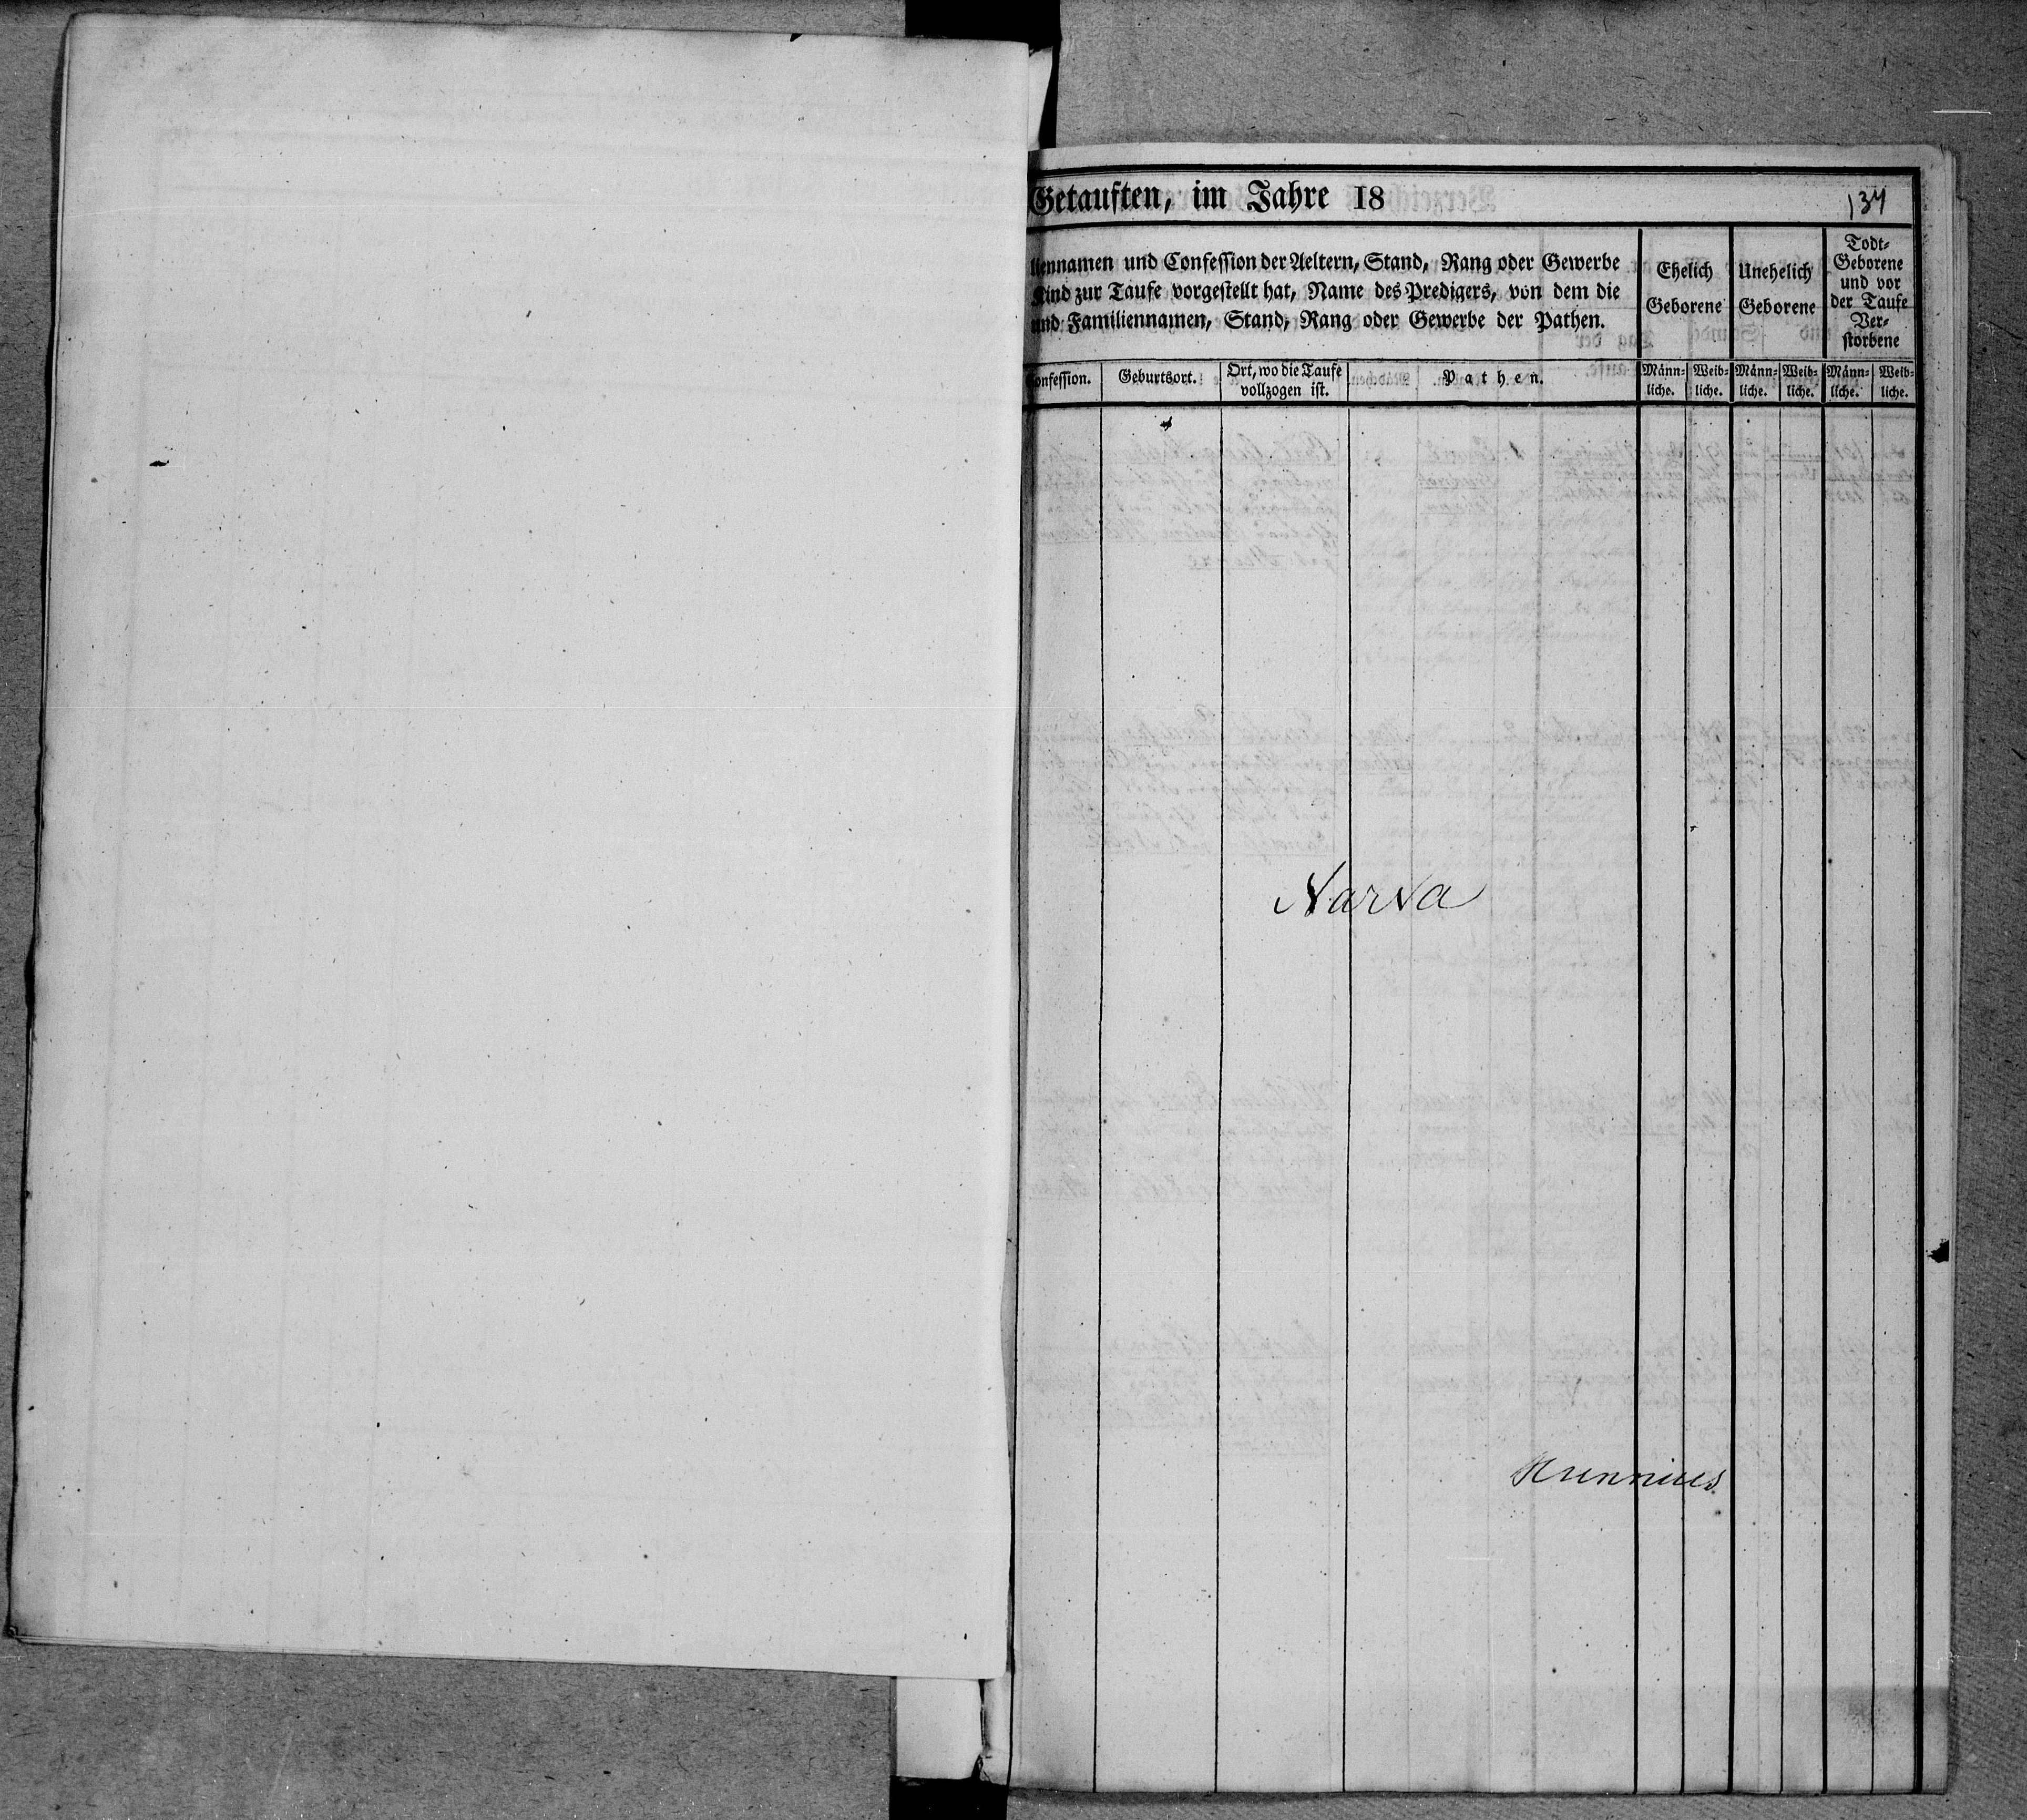 Getauften, im Jahre 18
137
liennamen und Confession der Aeltern, Stand, Rang oder Gewerbe
Kind zur Taufe vorgestellt hat, Name des Predigers, von dem die
und Familiennamen, Stand, Rang oder Gewerbe der Pathen.
Ehelich
Geborene
Unehelich
Geborene
Todt-
Geborene
und vor
der Taufe
Ver-
storbene
Confession.
Geburtsort.
Ort, wo die Taufe
vollzogen ist.
Pathen.
Männ-
liche.
Weib-
liche.
Männ-
liche.
Weib-
liche.
Männ-
liche.
Weib-
liche.
Narva
Hunnius